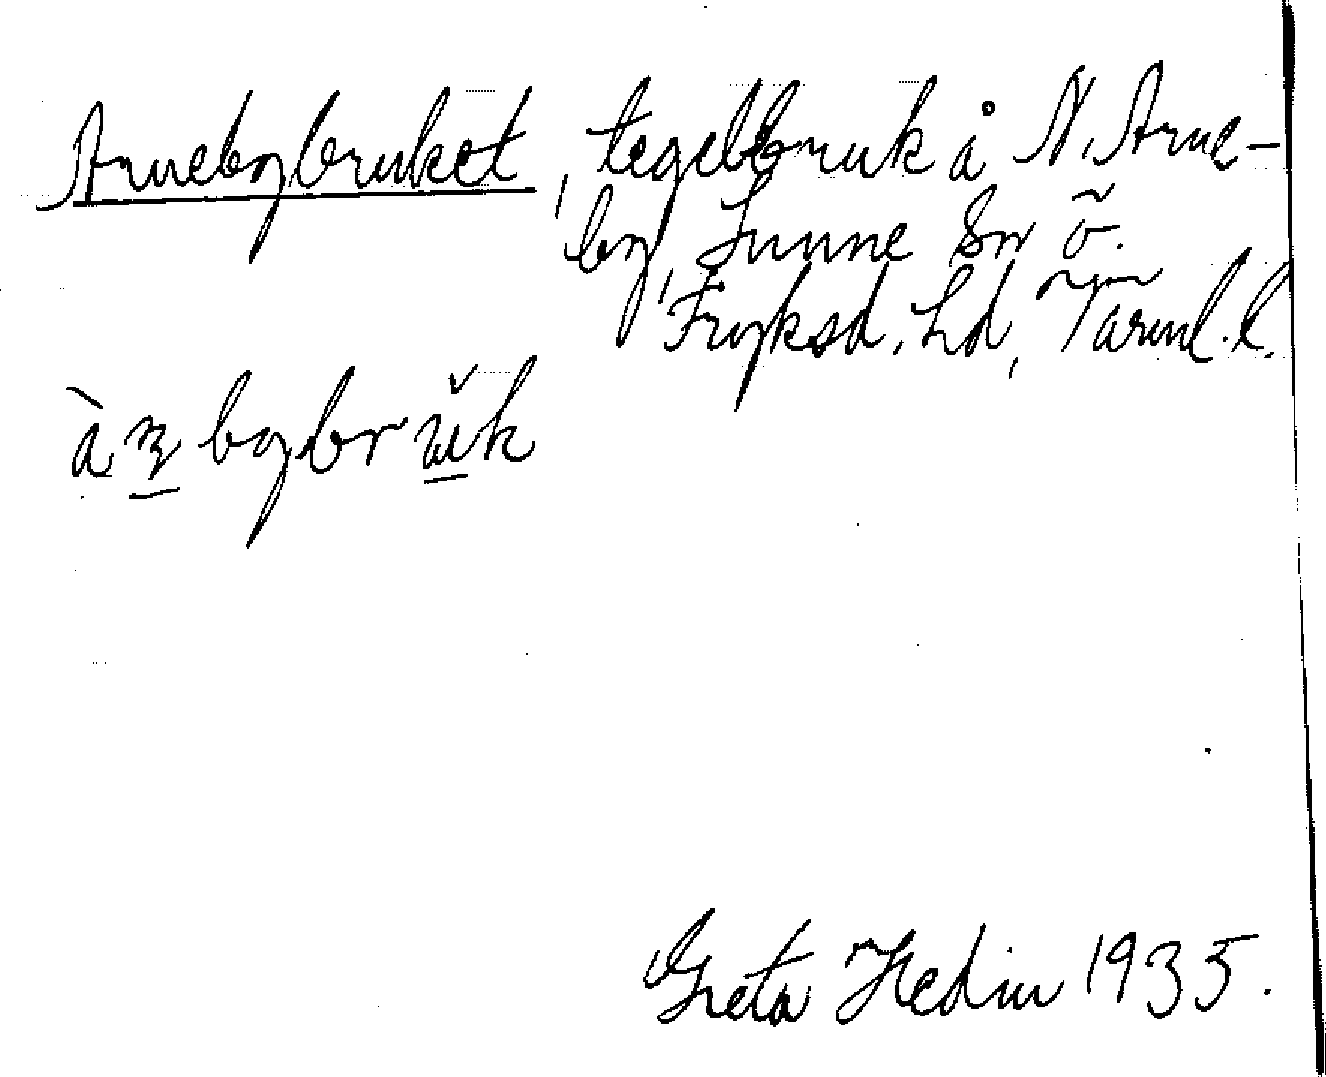 Arnebybruket, tegelbruk å N. Arne-
by, Sunne sn ö.
Fryksd. hd, Värml. l.
Greta Hedin 1935.